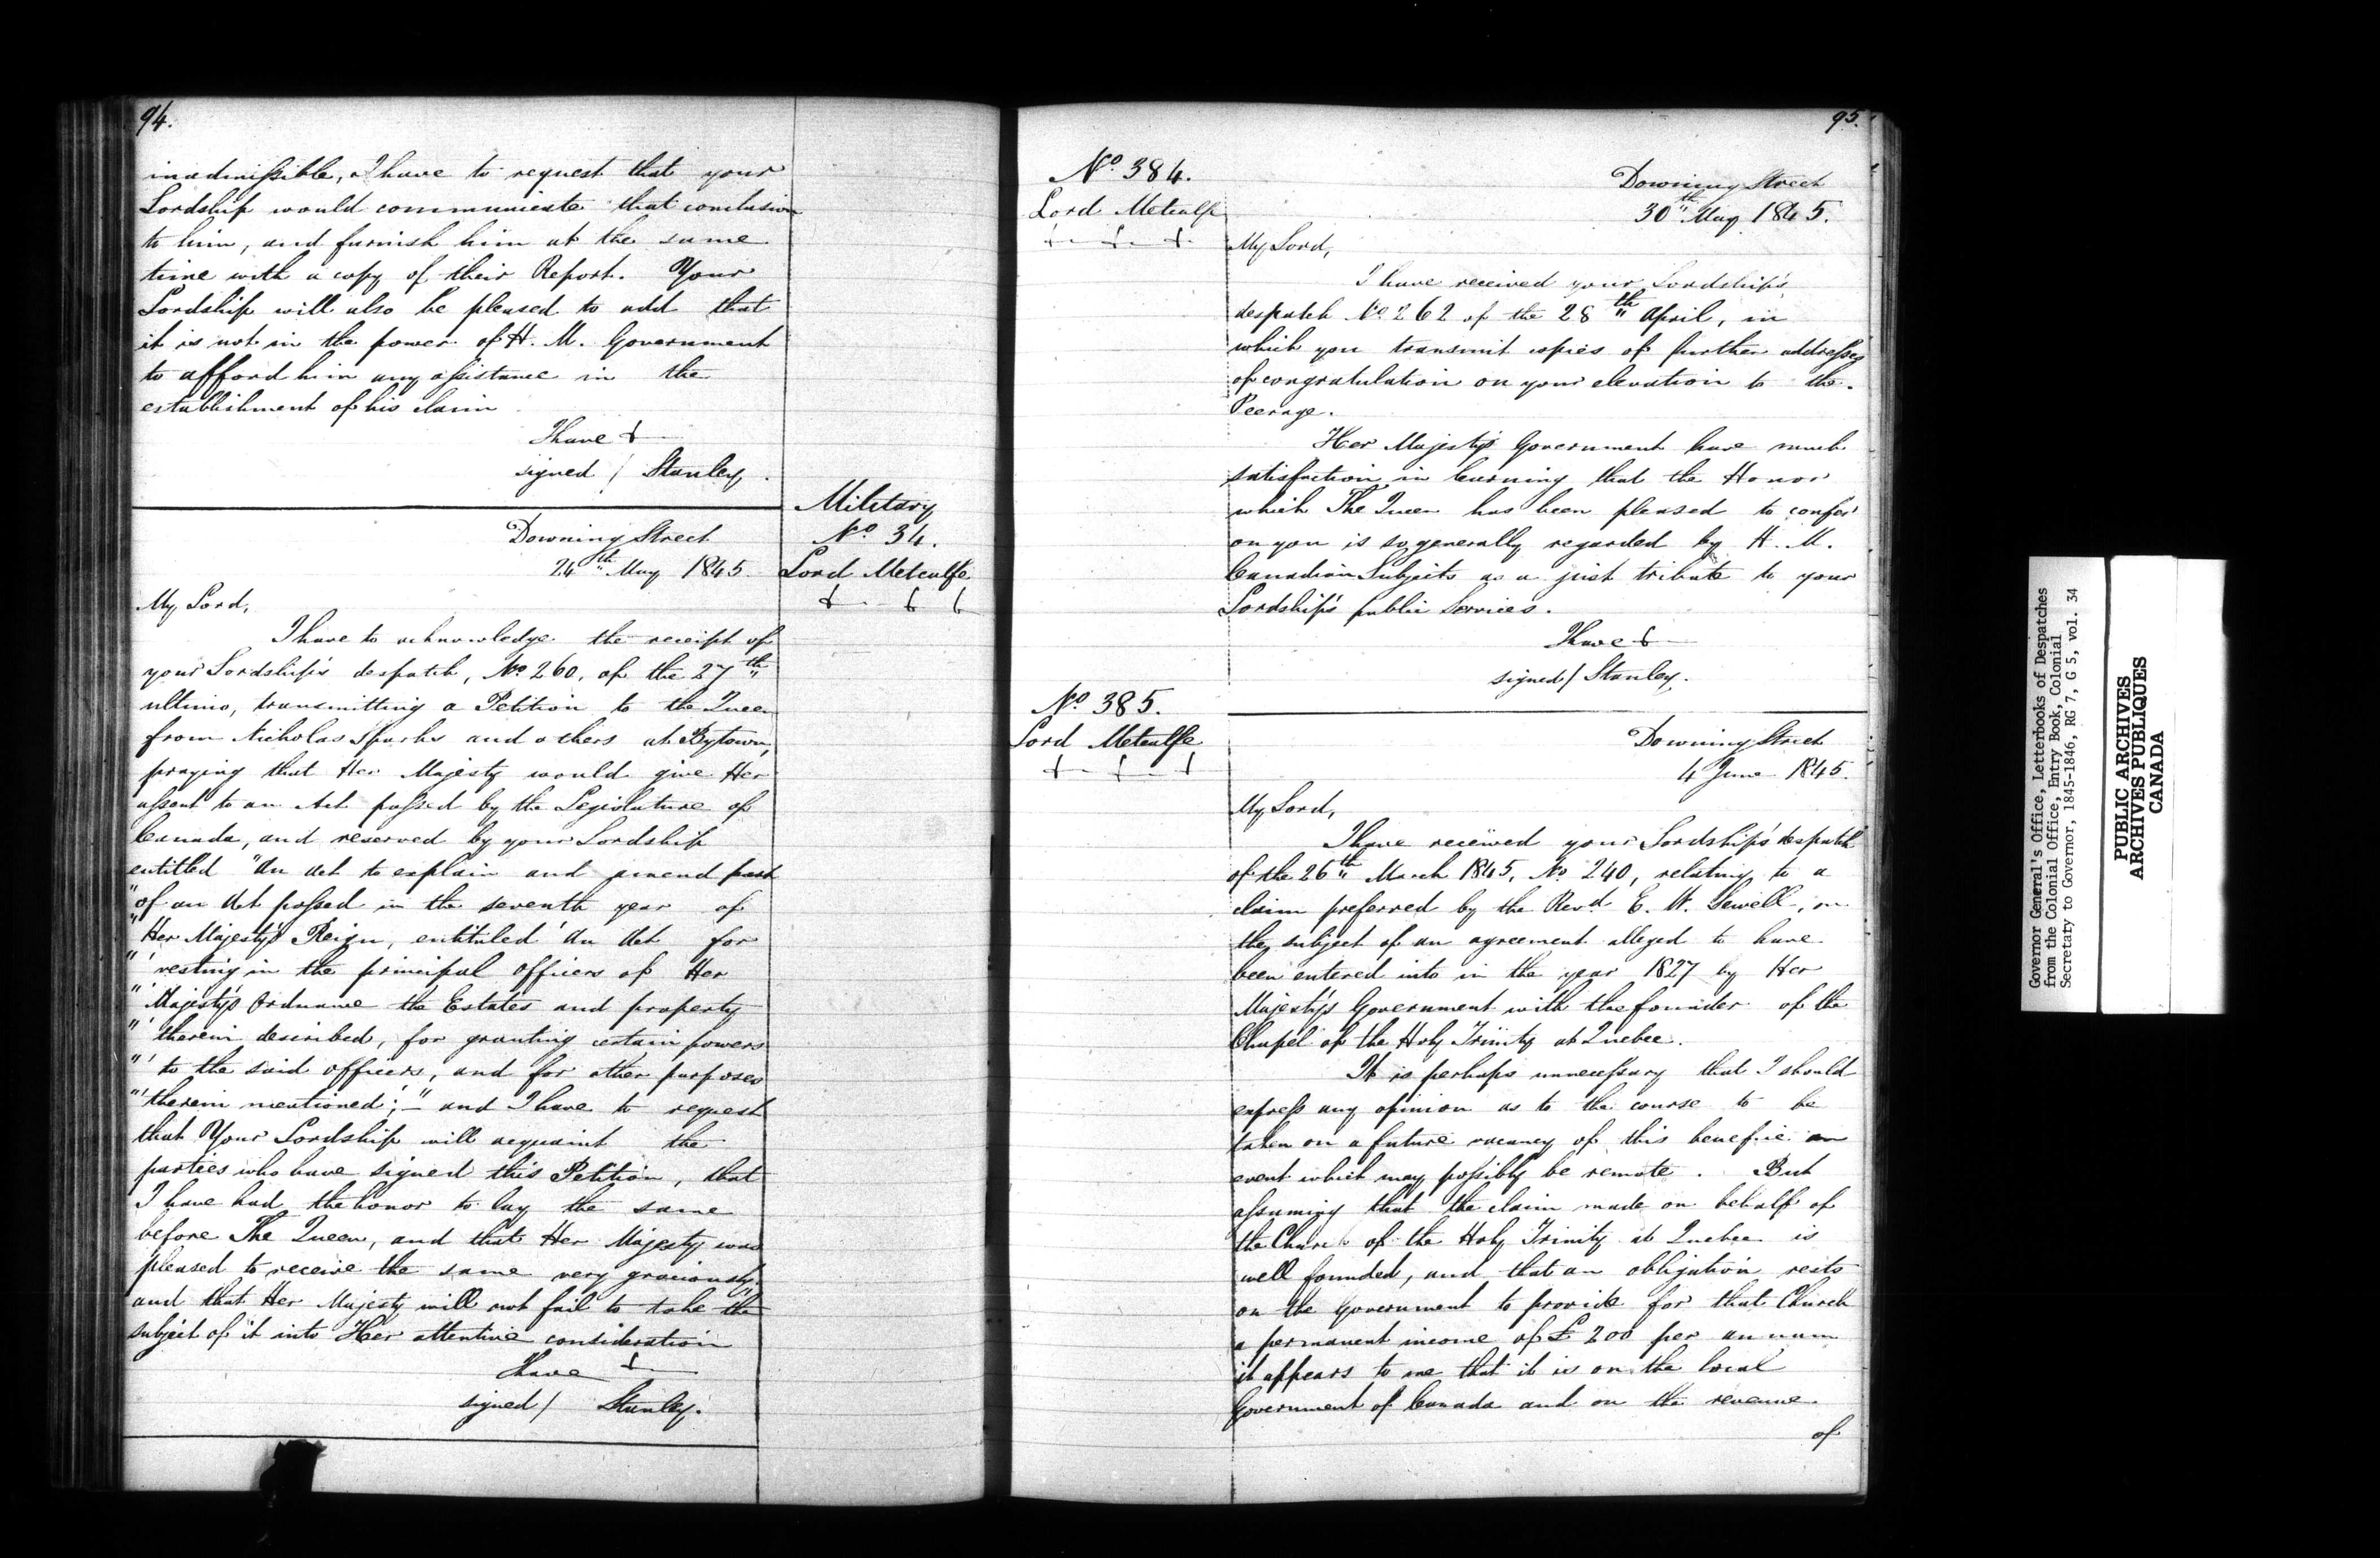 94.
inadmissible, I have to request that your
Lordship would communicate that conclusion
to him, and furnish him at the same
time with a copy of their Report. Your
Lordship will also be pleased to add that
it is not in the power of H. M. Government
to afford him any assistance in the
establishment of his claim
I have &
signed / Stanley.
Military
No. 34.
Lord Metcalfe
& & &
Downing Street
24th May 1845
My Lord,
I have to acknowledge the receipt of
your Lordship's despatch, No. 260, of the 27th
ultimo, transmitting a Petition to the Queen
from Nicholas Sparks and others at Bytown,
praying that Her Majesty would give Her
assent to an Act passed by the Legislature of
Canada, and reserved by your Lordship
entitled "An Act to explain and amend part
"of an Act passed in the seventh year of
"Her Majesty's Reign, entituled 'An Act for
"'vesting in the principal officers of Her
"'Majesty's Ordnance the Estates and property
"'therein described, for granting certain powers
"'to the said officers, and for other purposes
"'therein mentioned;'–" and I have to request
that Your Lordship will acquaint the
parties who have signed this Petition, that
I have had the honor to lay the same
before The Queen, and that Her Majesty was
pleased to receive the same very graciously,
and that Her Majesty will not fail to take the
subject of it into Her attentive consideration
I have &
signed / Stanley.
95.
No. 384.
Lord Metcalfe
& & &
Downing Street
30th May 1845.
My Lord,
I have received your Lordship's
despatch No. 262 of the 28th April, in
which you transmit copies of further addresses
of congratulation on your elevation to the
Peerage.
Her Majesty's Government have much
satisfaction in learning that the Honor
which The Queen has been pleased to confer
on you is so generally regarded by H. M.
Canadian Subjects as a just tribute to your
Lordship's public Services.
I have &
signed / Stanley.
No. 385.
Lord Metcalfe
& & &
Downing Street
4 June 1845.
My Lord,
I have received your Lordship's despatch
of the 26th March 1845, No. 240, relating to a
claim preferred by the Revd. E. W. Sewell, on
the subject of an agreement alleged to have
been entered into in the year 1827 by Her
Majesty's Government with the founder of the
Chapel of the Holy Trinity at Quebec.
It is perhaps unnecessary that I should
express any opinion as to the course to be
taken on a future vacancy of this benefice an
event which may possibly be remote. But
assuming that the claim made on behalf of
the Church of the Holy Trinity at Quebec is
well founded, and that an obligation rests
on the Government to provide for that Church
a permanent income of £200 per annum
it appears to me that it is on the local
Government of Canada and on the revenue
of
Governor General's Office, Letterbooks of Despatches
from the Colonial Office, Entry Book, Colonial
Secretary to Governor, 1845-1846, RG 7, G 5, vol. 34
PUBLIC ARCHIVES
ARCHIVES PUBLIQUES
CANADA